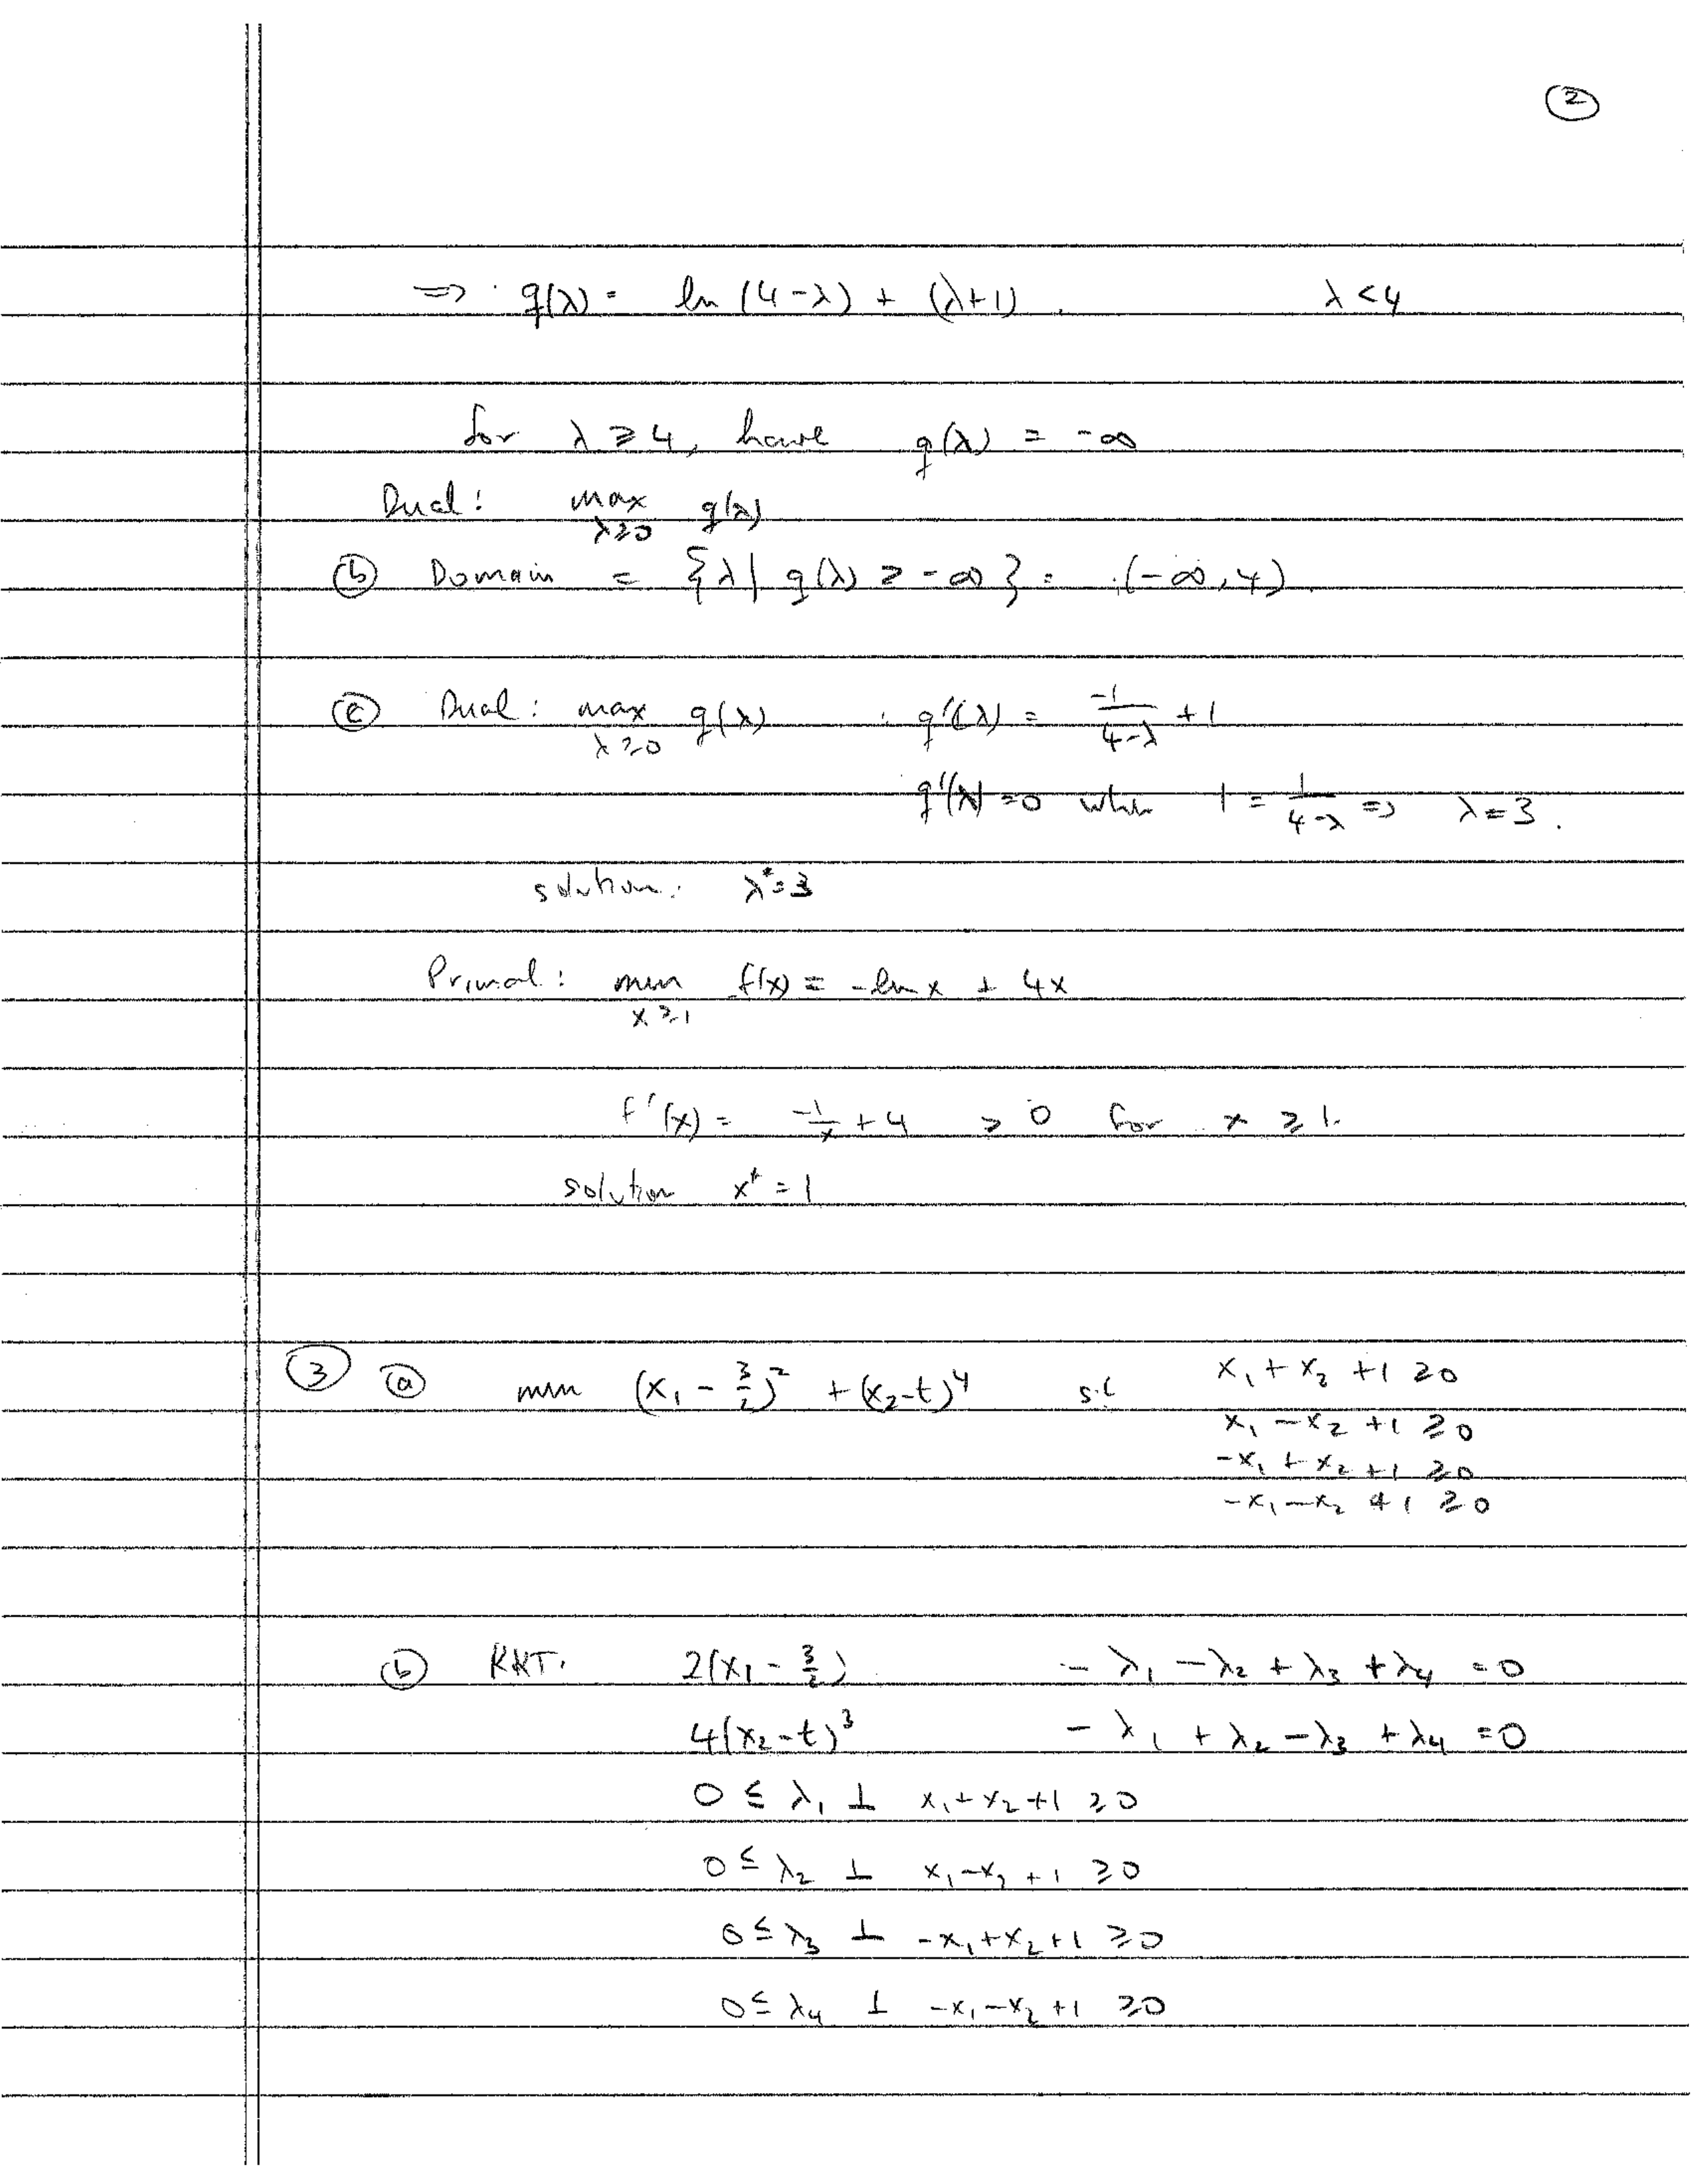 ②
⇒ q(λ) = ln (4-λ) + (λ+1). λ < 4
for λ ≥ 4, have q(λ) = -∞
Dual: max q(λ)
λ≥0
ⓑ Domain = {λ | q(λ) > -∞} = (-∞, 4).
ⓒ Dual: max q(λ) : q'(λ) = -1/(4-λ) + 1
λ≥0
q'(λ) = 0 when 1 = 1/(4-λ) ⇒ λ = 3.
solution: λ* = 3
Primal: min f(x) = -ln x + 4x
x ≥ 1
f'(x) = -1/x + 4 > 0 for x ≥ 1.
solution x* = 1
③ ⓐ min (x₁ - 3/2)² + (x₂-t)⁴ s.t x₁ + x₂ + 1 ≥ 0
x₁ - x₂ + 1 ≥ 0
-x₁ + x₂ + 1 ≥ 0
-x₁ - x₂ + 1 ≥ 0
ⓑ KKT. 2(x₁ - 3/2) - λ₁ - λ₂ + λ₃ + λ₄ = 0
4(x₂-t)³ - λ₁ + λ₂ - λ₃ + λ₄ = 0
0 ≤ λ₁ ⊥ x₁+x₂+1 ≥ 0
0 ≤ λ₂ ⊥ x₁-x₂+1 ≥ 0
0 ≤ λ₃ ⊥ -x₁+x₂+1 ≥ 0
0 ≤ λ₄ ⊥ -x₁-x₂+1 ≥ 0